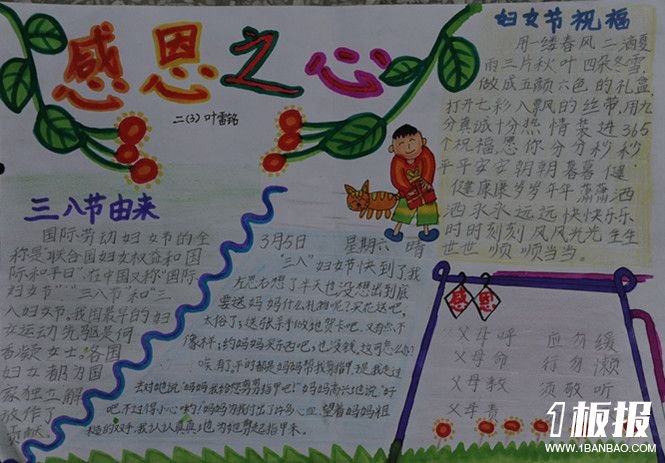 感恩之心
二(3) 叶雷铭
妇女节祝福
用一缕春风 二滴夏
雨三片秋叶四朵冬雪,
做成五颜六色的礼盒,
打开七彩八飘风的丝带,用九
分真诚十分热情装进365
个祝福,愿你分分秒秒
平平安安朝朝暮暮健
健康康岁岁年年潇潇洒
洒永永远远快快乐乐
时时刻刻风风光光生生
世世顺顺当当。
三八节由来
国际劳动妇女节的全
称是"联合国妇女权益和国
际和平日"在中国又称"国际
妇女节""三八节"和"三
八妇女节。我国最早的妇
女运动先驱是何
香凝女士。各国
妇女都为国
家独立解
放作了
贡献。
3月5日 星期六 晴
"三八"妇女节快到了我
左思右想了半天也没想出到底
要送妈妈什么礼物呢?买花送吧,
太俗了;送敬亲手做地贺卡吧,又
像样;约妈妈买东西吧,也没钱,这可怎么
唉,有了,平时都是妈妈帮我剪指甲
去对她说"妈妈我给您剪剪指甲吧!"妈妈高兴地说"好
吧,不过得小心哟!"妈妈为我付出了许多心血,望着妈妈粗
糙的双手,我认认真真地为她剪起指甲来。
感恩
父母呼 应勿缓
父母命 行勿懒
父母教 须敬听
父母责
1板报
WWW.1BANBAO.COM